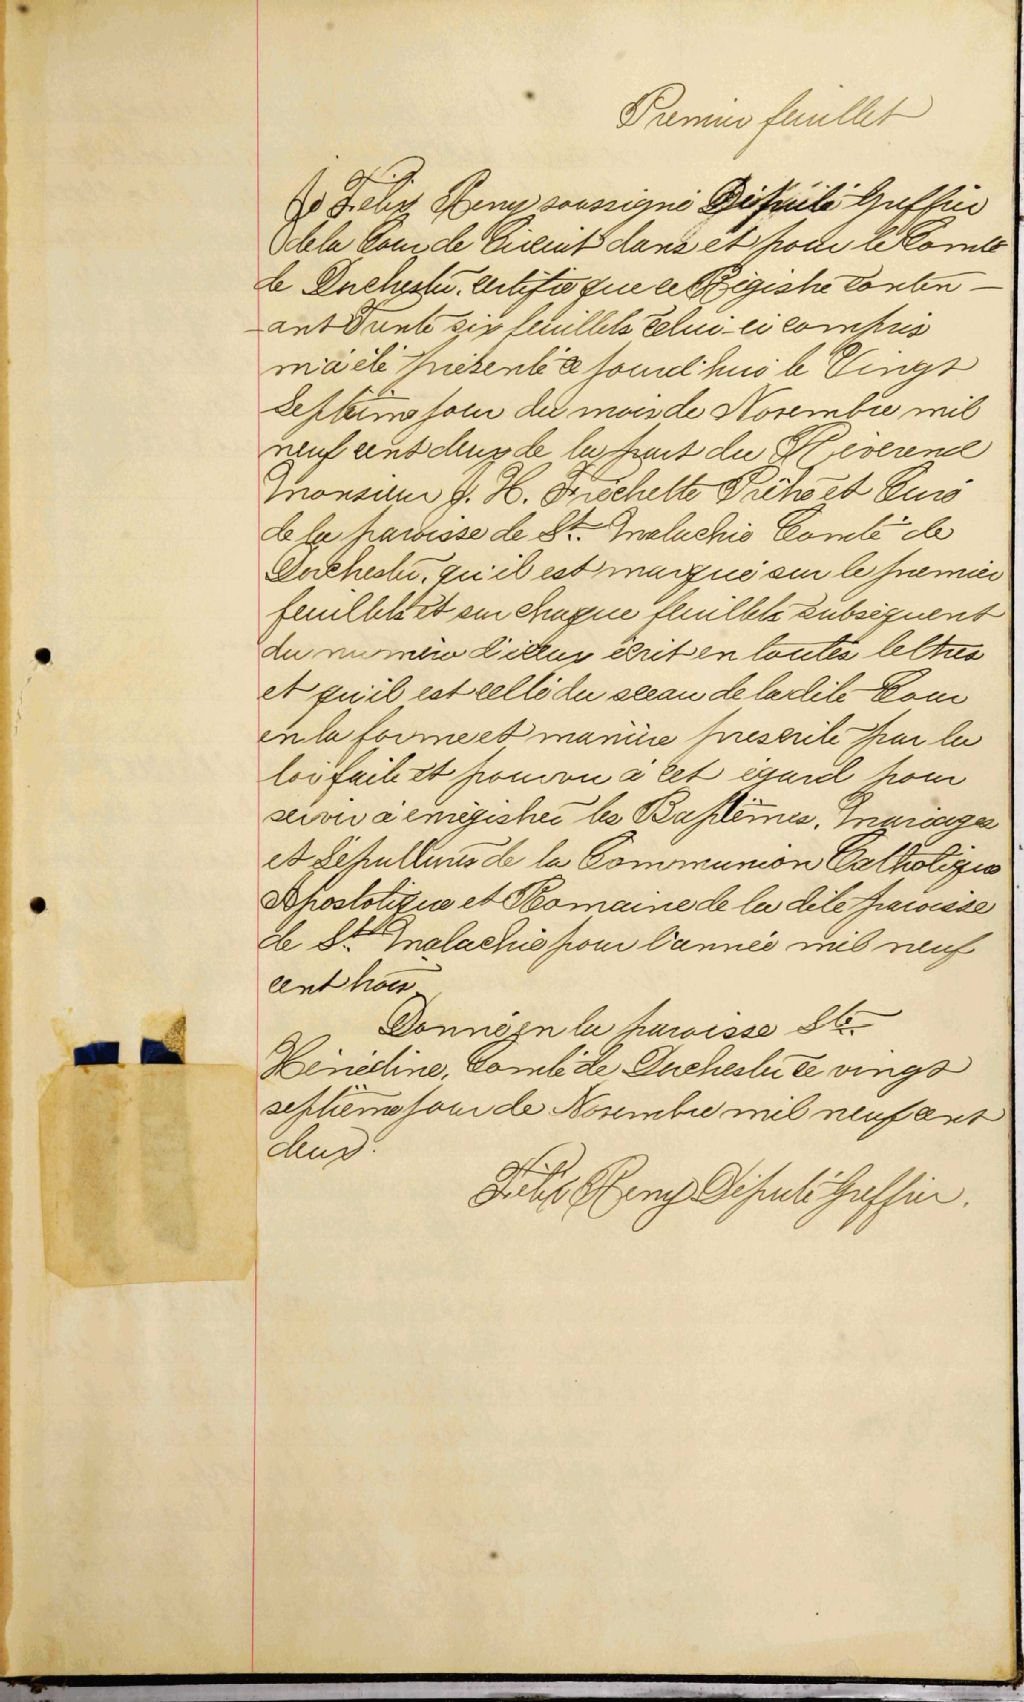 Premier feuillet
Je Félix Remy soussigné Député Greffier
de la Cour de Circuit dans et pour le Comté
de Dorchester, certifie que ce Régistre conten-
-ant Trente six feuillets celui-ci compris
m'a été présenté ce jourd'hui le Vingt
Septième jour du mois de Novembre mil
neuf cent deux de la part du Révérend
Monsieur J. H. Fréchette Prêtre et Curé
de la paroisse de St. Malachie Comté de
Dorchester, qu'il est marqué sur le premier
feuillets et sur chaque feuillets subséquent
du numéro d'iceux écrit en toutes lettres
et qu'il est cellé du sceau de la dite Cour
en la forme et manière prescrite par la
loi faite et pourvu à cet égard pour
servir à enrégistrer les Baptêmes, Mariages
et Sépultures de la Communion Catholique
Apostolique et Romaine de la dite paroisse
de St. Malachie pour l'année mil neuf
cent trois.
Donné en la paroisse Ste.
Hénédine, Comté de Dorchester ce vingt
septième jour de Novembre mil neuf cent
deux.
Félix Remy Député Greffier.